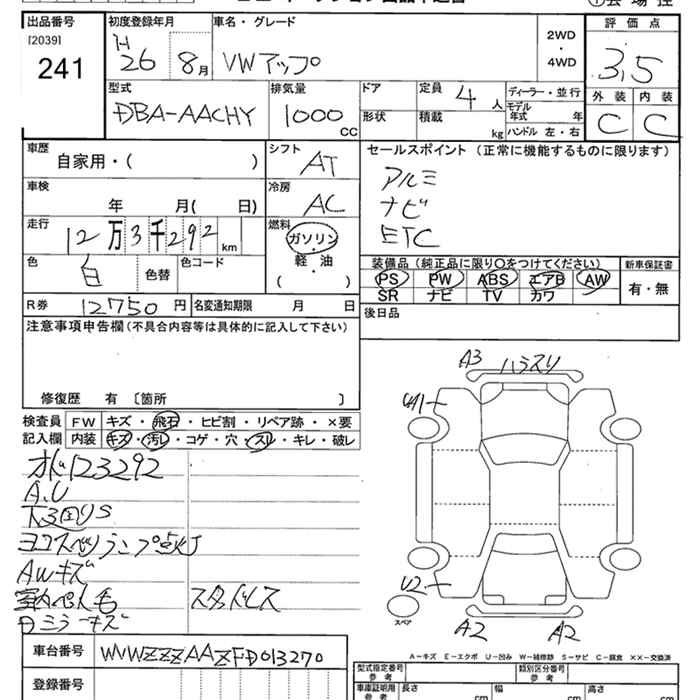 出品番号
[2039]
241
初度登録年月
H 26 8月
車名・グレード
VWアップ
2WD
・
4WD
評価点
3.5
外装 内装
C C
型式
DBA-AACHY
排気量
1000 CC
ドア
形状
定員 4 人
積載 kg
ディーラー・並行
モデル年式 年
ハンドル 左・右
車歴
自家用・( )
シフト
AT
セールスポイント (正常に機能するものに限ります)
アルミ
ナビ
ETC
車検
年 月( 日)
冷房
AC
走行
12万3千292 km
燃料
ガソリン
軽・油
( )
色
白
色替
色コード
装備品 (純正品に限り○をつけてください)
PS PW ABS エアB AW
SR ナビ TV カワ
新車保証書
有・無
R券 12750円
名変通知期限 月 日
後日品
注意事項申告欄(不具合内容等は具体的に記入して下さい)
修復歴 有 〔箇所 〕
検査員
記入欄
FW キズ・飛石・ヒビ割・リペア跡・×要
内装 キズ・汚レ・コゲ・穴・スレ・キレ・破レ
オド123292
A.U
下3回りS
ヨコスベリランプ点灯
AWキズ
室内ペット毛
スタッドレス
日ミラーキズ
A3 ハラスリ
A1
U2
A2
A2
スペア
A-キズ E-エクボ U-凹み W-補修跡 S-サビ C-腐食 ××-交換済
車台番号
WVWZZZAAZFD013270
登録番号
型式指定番号
参考
類別区分番号
参考
車庫証明用
参考
長さ cm
幅 cm
高さ cm